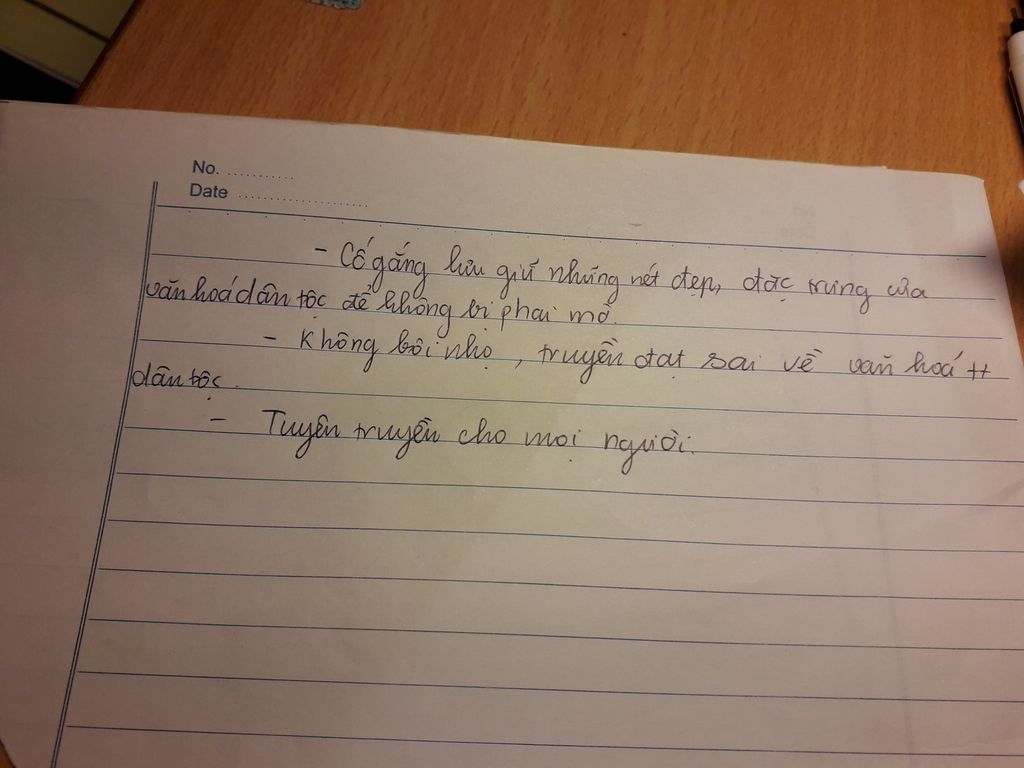 No. ............
Date ......................
- Cố gắng lưu giữ những nét đẹp, đặc trưng của
văn hoá dân tộc để không bị phai mờ.
- Không bôi nhọ, truyền đạt sai về văn hoá tt
dân tộc.
- Tuyên truyền cho mọi người.